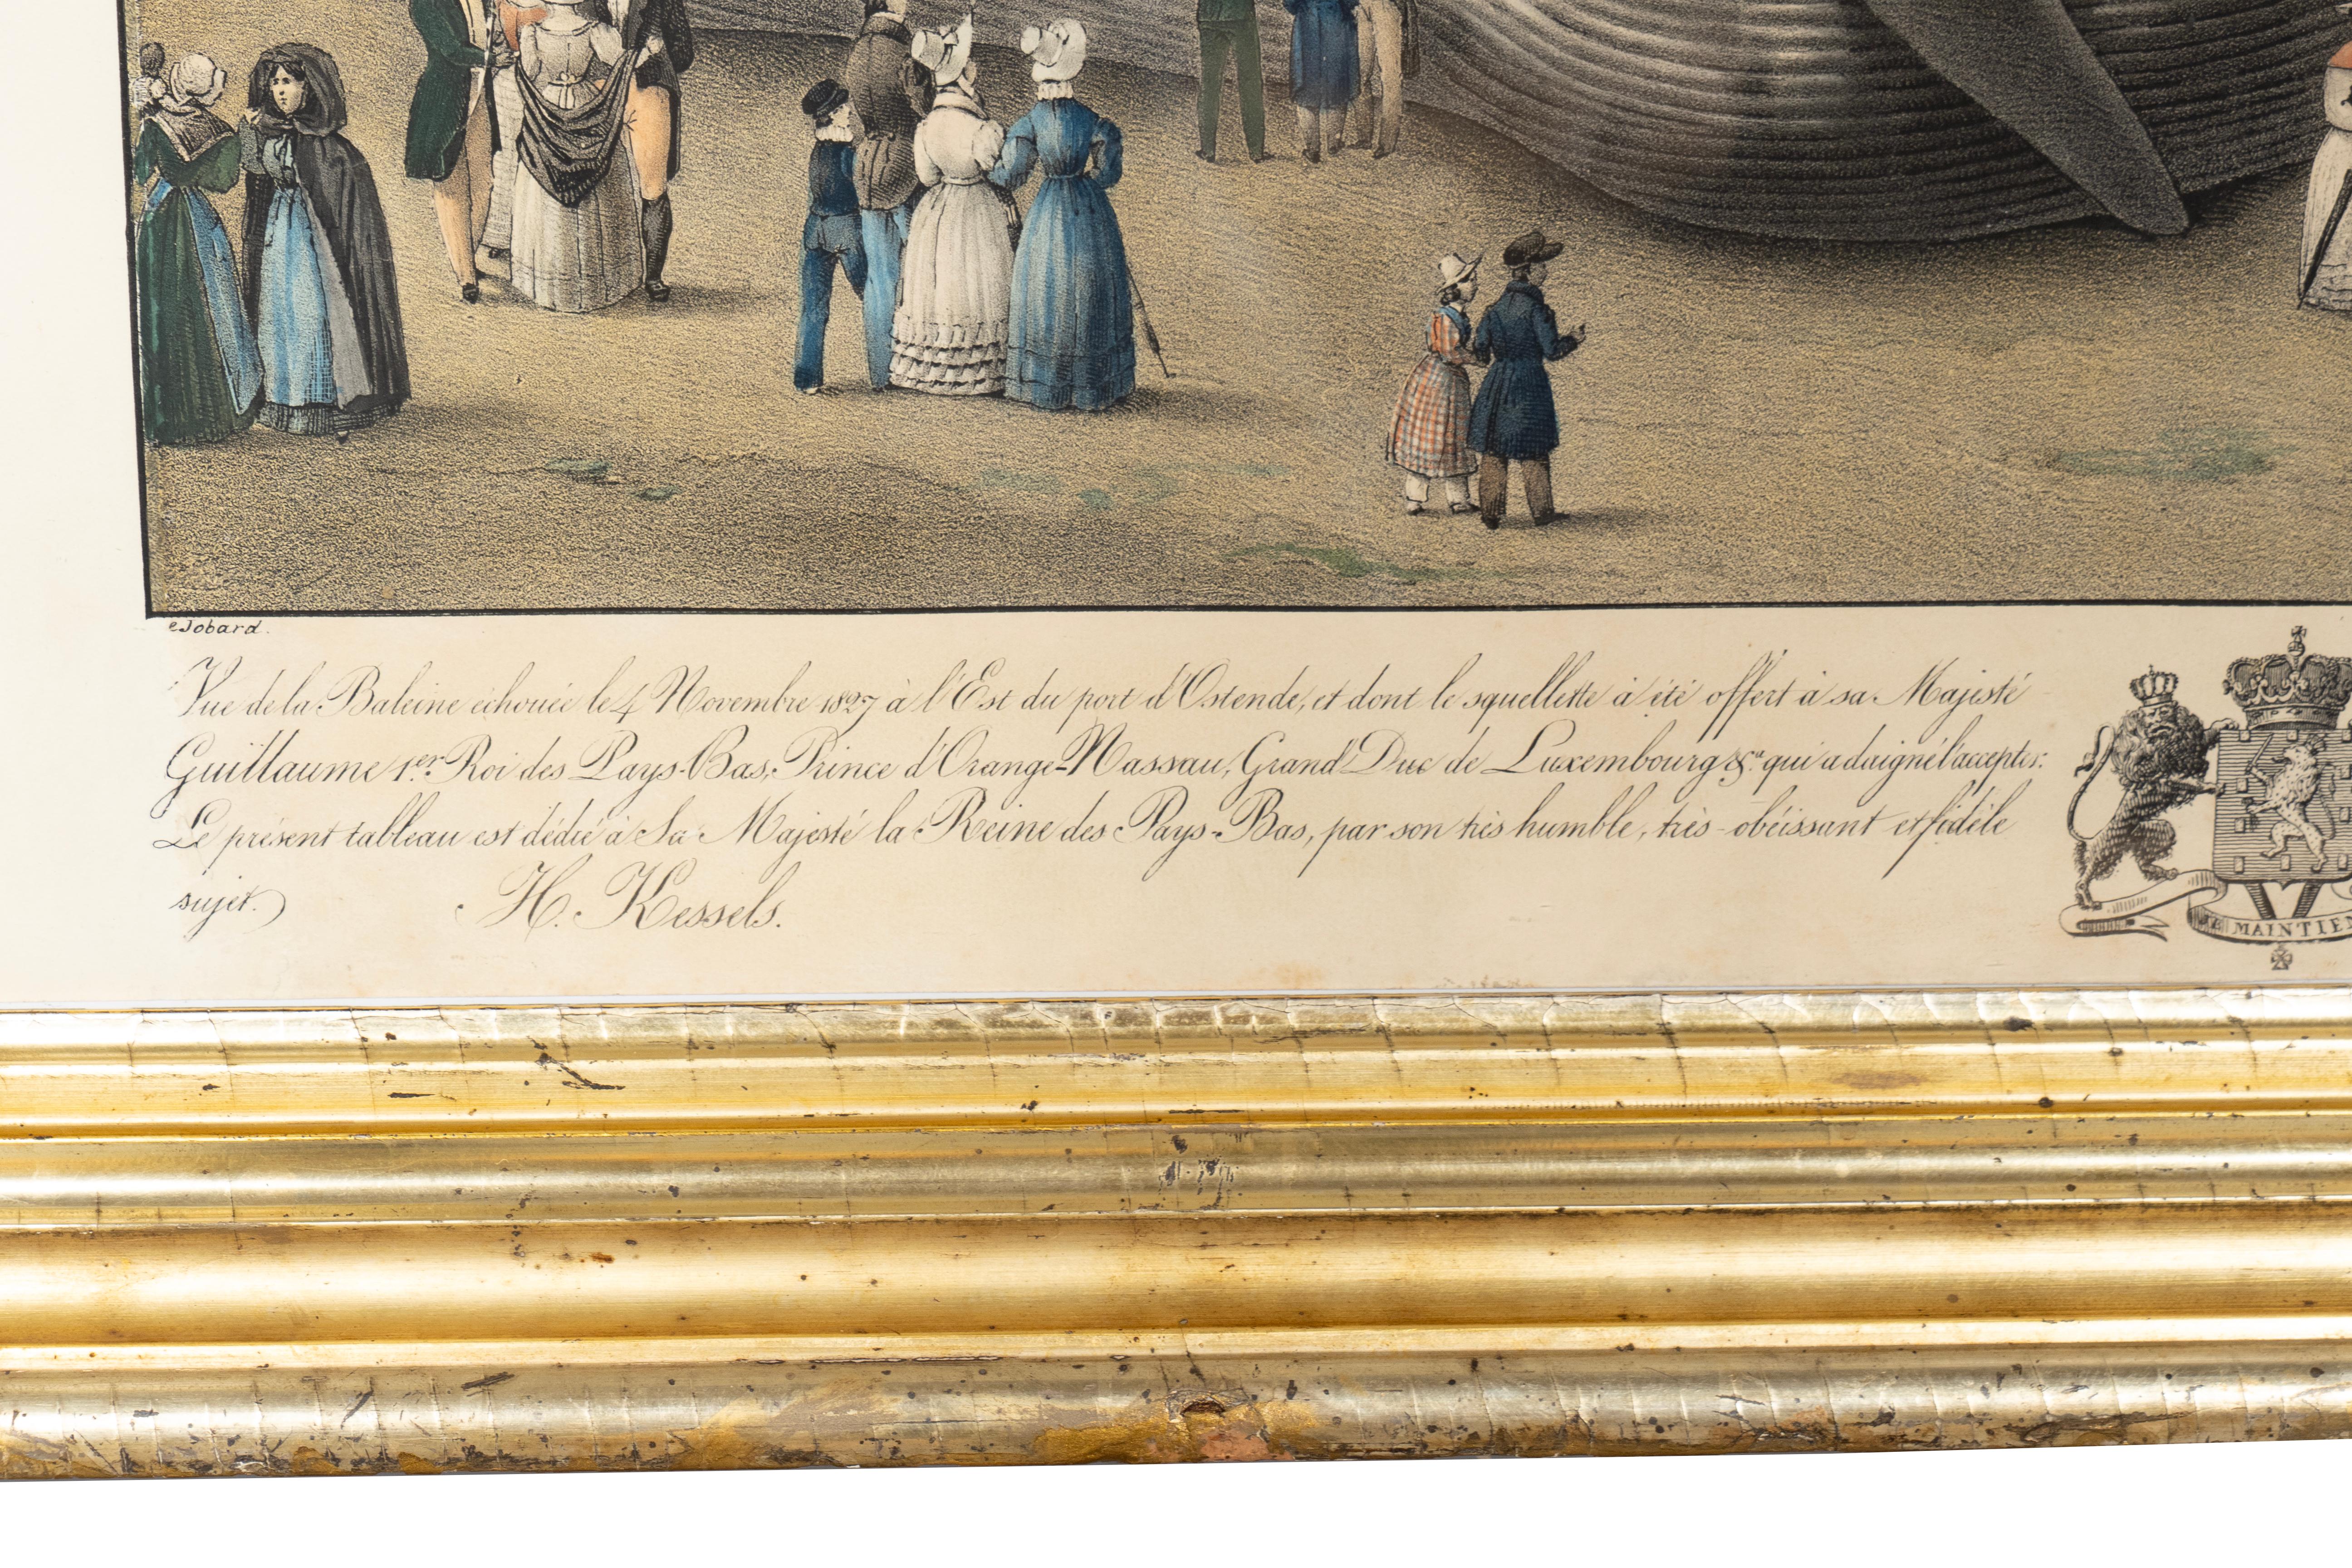 e Jobard.
Vue de la Baleine échouée le 4 Novembre 1827 à l'Est du port d'Ostende, et dont le squellette à été offert à sa Majesté
Guillaume 1.er Roi des Pays-Bas, Prince d'Orange-Nassau, Grand Duc de Luxembourg &.a qui a daigné l'accepter:
Le présent tableau est dédié à Sa Majesté la Reine des Pays-Bas, par son très humble, très-obéissant et fidèle
sujet.
H. Kessels.
MAINTIEN